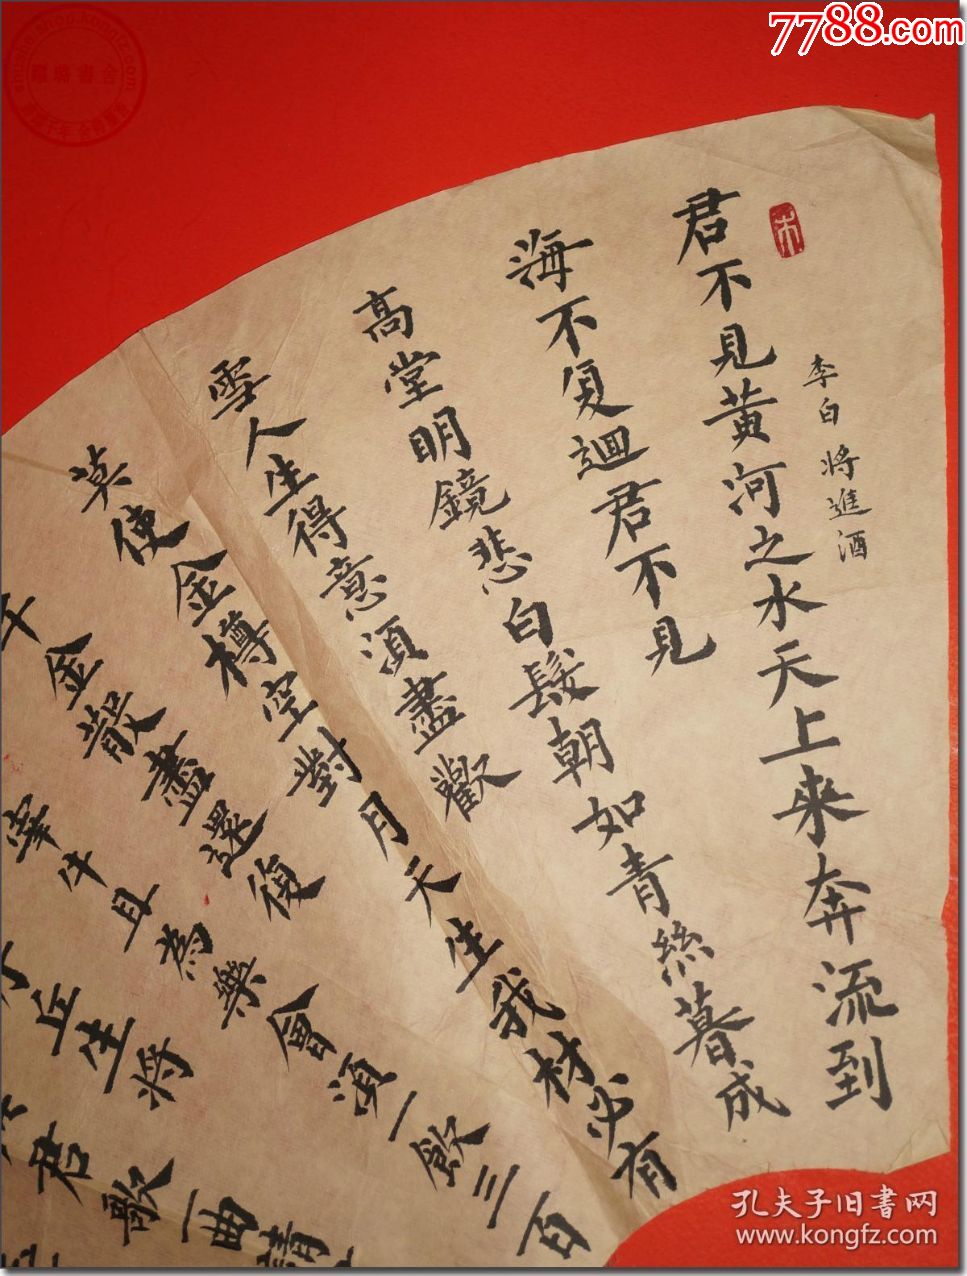 7788.com
李白 将進酒
君不見黃河之水天上來奔流到
海不復迴君不見
高堂明鏡悲白髮朝如青絲暮成
雪人生得意須盡歡
莫使金樽空對月天生我材必有
千金散盡還復
宰牛且為樂會須一飲三百
丘生将
君歌一曲請
孔夫子旧書网
www.kongfz.com